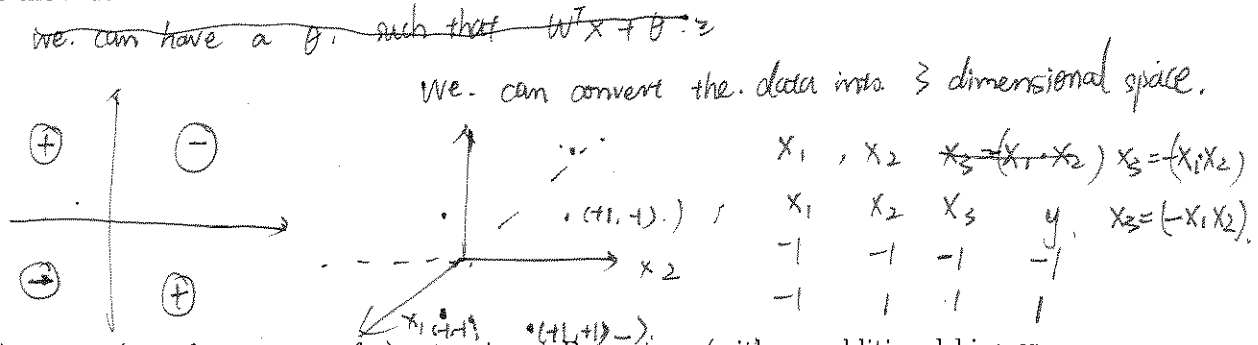 we. can have a θ, such that WᵀX + θ ≥
We. can convert the. data into 3 dimensional space.
+ −
X₁ , X₂ X₃ = (X₁·X₂) X₃ = -(X₁X₂)
(+1, -1).)
X₁ X₂ X₃ y. X₃ = (-X₁X₂).
-1 -1 -1 -1
x 2
− +
-1 1 1 1
X₁ (-1,-1) (+1,+1) -).